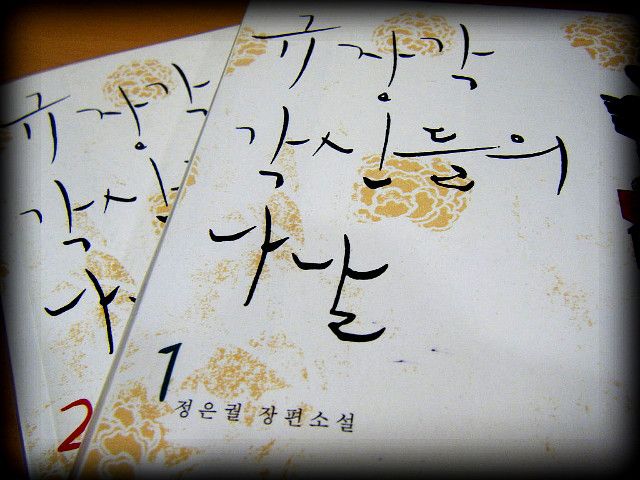 규장각
각신들의
나날
1
정은궐 장편소설
규장각
각신
나
2